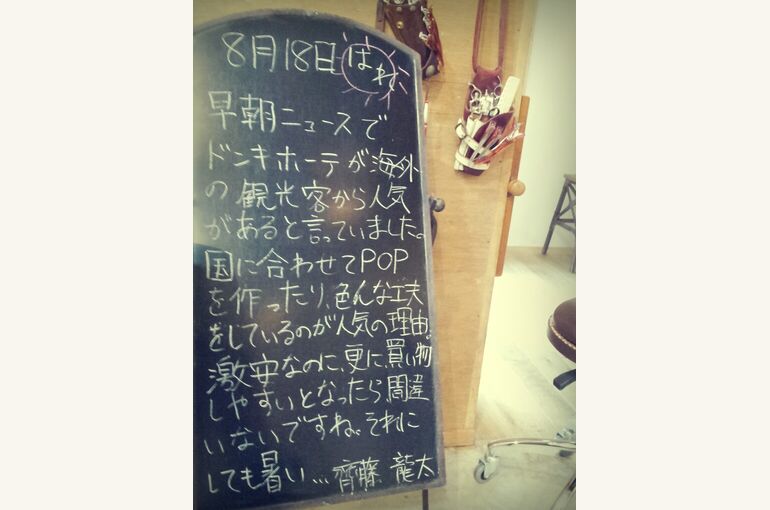 8月18日 はれ
早朝ニュースで
ドンキホーテが海外
の観光客から人気
があると言っていました。
国に合わせてPOP
を作ったり、色んな工夫
をしているのが人気の理由。
激安なのに、更に買い物
しやすいとなったら間違
いないですね。それに
しても暑い... 齊藤 龍太